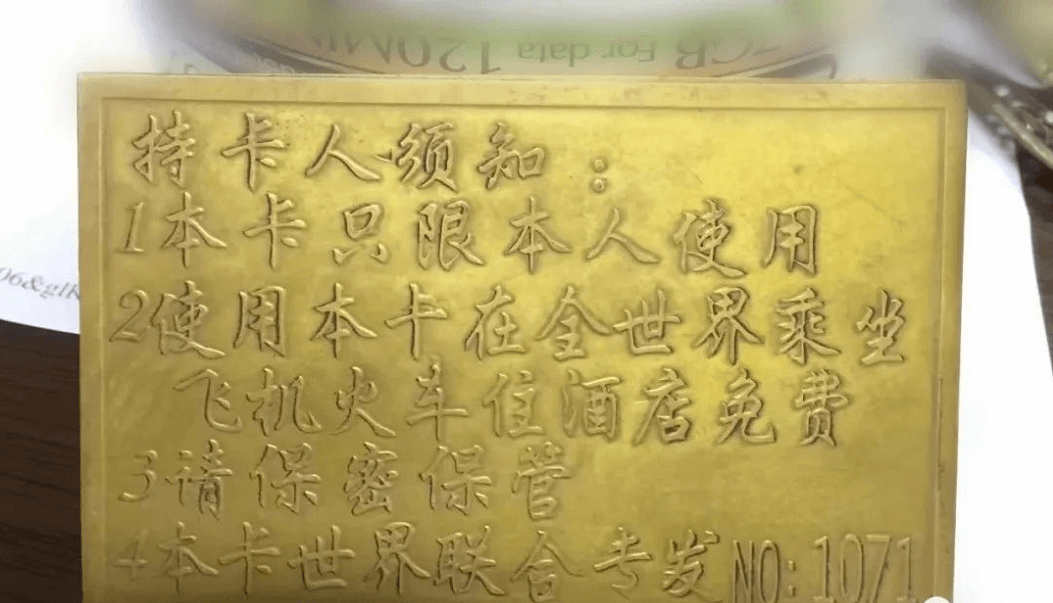 CB For data 120MIN
06&glk
持卡人须知：
1本卡只限本人使用
2使用本卡在全世界乘坐
飞机火车住酒店免费
3请保密保管
4本卡世界联合专发 NO:1071